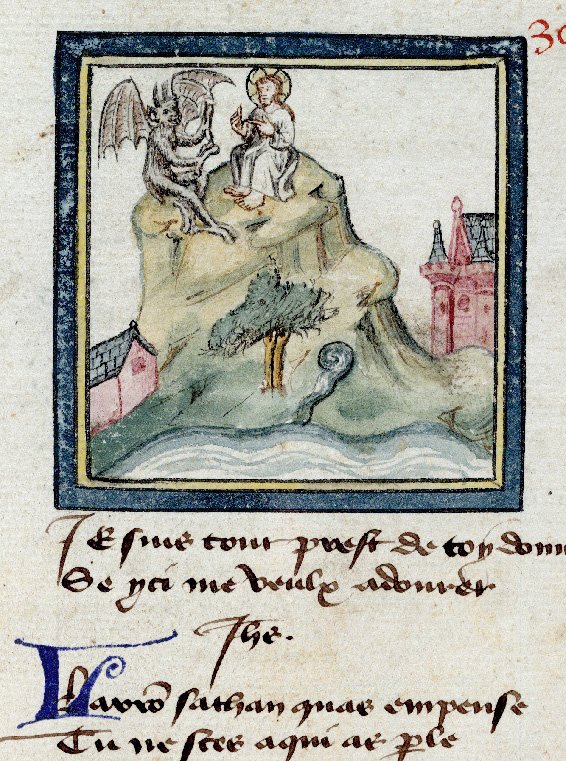 30
JE suis tout prest de toy donn
Se yci me veulx adourer
Jhs.
Larrō sathan quas empense
Tu ne sces aqui as ꝑle